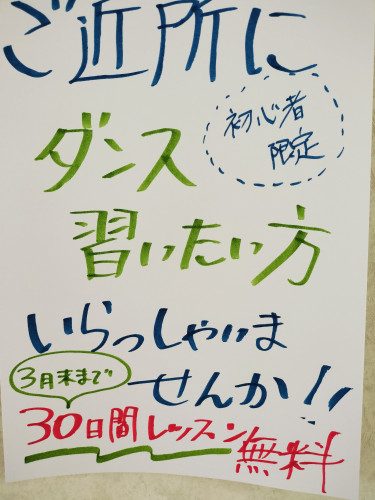 ご近所に
初心者
限定
ダンス
習いたい方
いらっしゃいま
せんか!!
3月末まで
30日間レッスン
無料